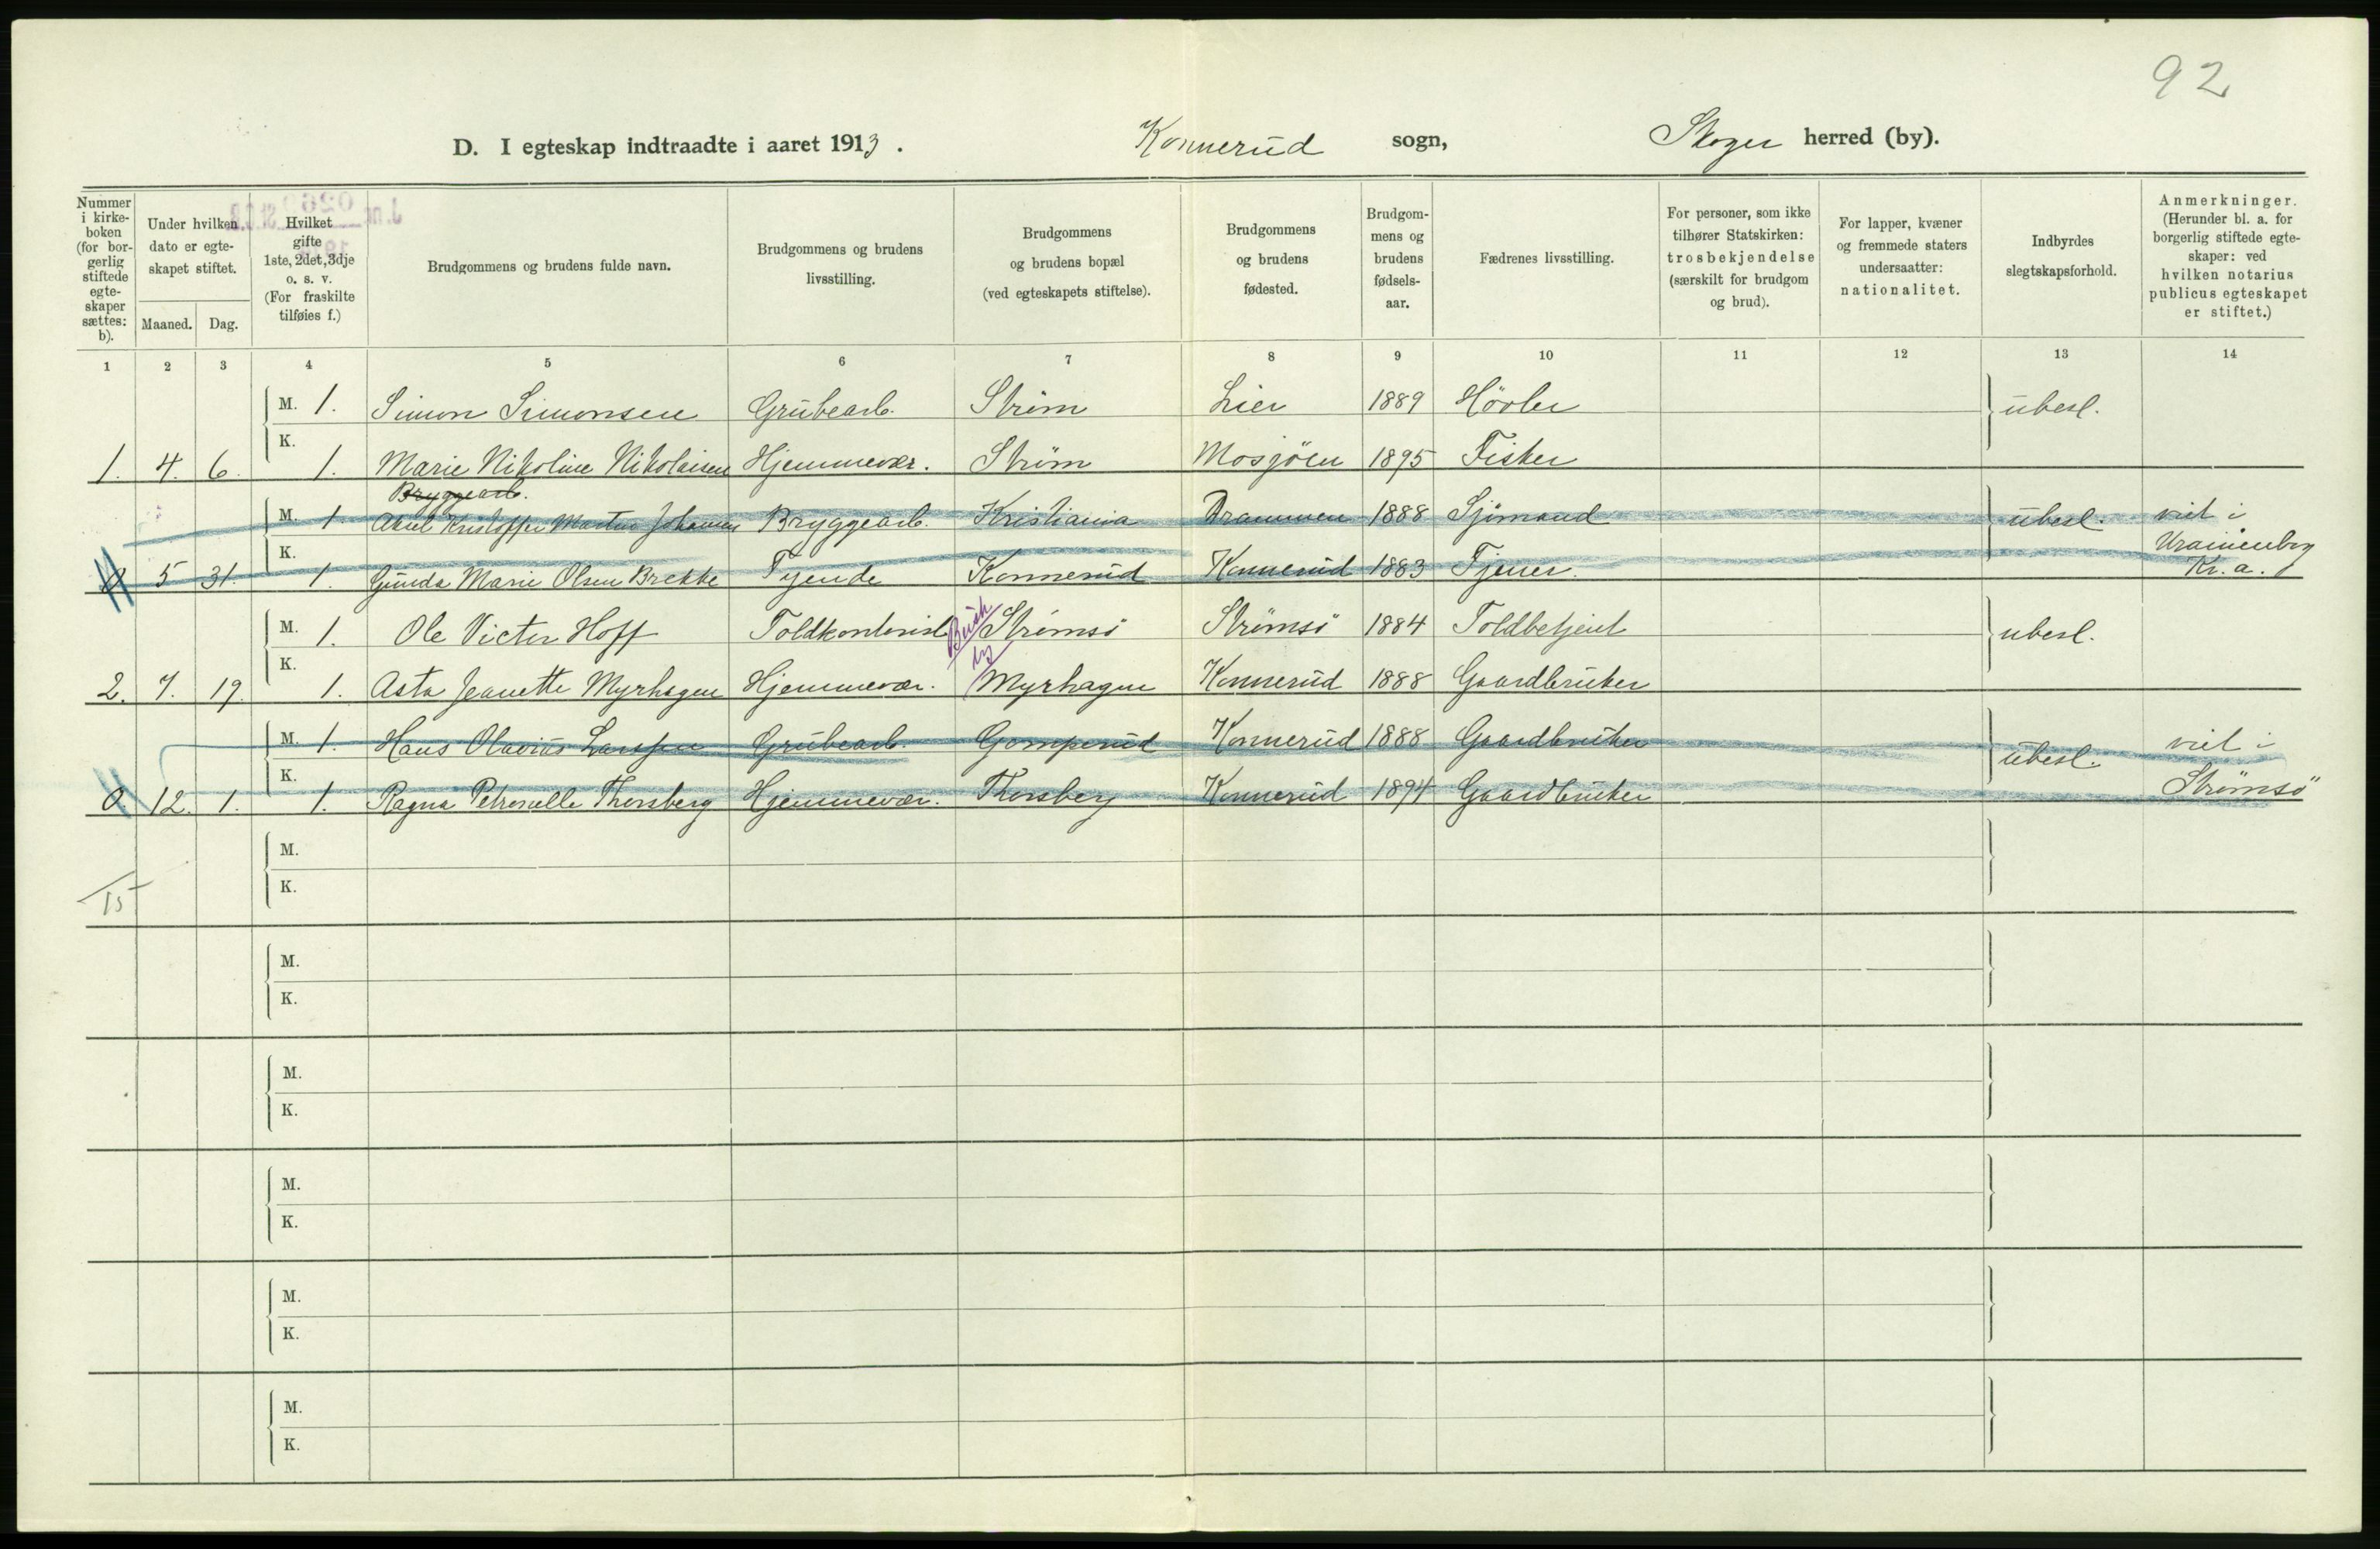 92
D. I egteskap indtraadte i aaret 1913. Konnerud sogn, Skoger herred (by).
Nummer i kirkeboken (for borgerlig stiftede egteskaper sættes: b).
Under hvilken dato er egteskapet stiftet.
Maaned. Dag.
Hvilket gifte 1ste, 2det, 3dje o. s. v. (For fraskilte tilføies f.)
Brudgommens og brudens fulde navn.
Brudgommens og brudens livsstilling.
Brudgommens og brudens bopæl (ved egteskapets stiftelse).
Brudgommens og brudens fødested.
Brudgommens og brudens fødselsaar.
Fædrenes livsstilling.
For personer, som ikke tilhører Statskirken: trosbekjendelse (særskilt for brudgom og brud).
For lapper, kvæner og fremmede staters undersaatter: nationalitet.
Indbyrdes slegtskapsforhold.
Anmerkninger. (Herunder bl. a. for borgerlig stiftede egteskaper: ved hvilken notarius publicus egteskapet er stiftet.)
1 2 3 4 5 6 7 8 9 10 11 12 13 14
M. 1. Simon Simonsen Grubearb. Strøm Lier 1889 Hövler ubesl.
1. 4. 6. K. 1. Marie Nikoline Nikolaisen Hjemmevær. Strøm Mosjöen 1895 Fisker
Bryggearb.
M. 1. Kristoffer Martin Johansen Bryggearb. Kristiania Drammen 1888 Sjömand ubesl. viet i
0 5 31. K. 1. Gunda Marie Olsen Brekke Tjende Konnerud Konnerud 1883 Tjener. Uranienborg Kr.a.
M. 1. Ole Victor Hoff Toldkontorist Strömsö Strömsö 1884 Toldbetjent ubesl.
2. 7. 19. K. 1. Asta Jeanette Myrhagen Hjemmevær. Myrhagen Konnerud 1888 Gaardbruker
M. 1. Hans Olavius Larssen Grubearb. Gomperud Konnerud 1888 Gaardbruker ubesl. viet i
0. 12. 1. K. 1. Ragna Petronelle Thorsberg Hjemmevær. Thorsberg Konnerud 1894 Gaardbruker Strömsö
M.
K.
15
M.
K.
M.
K.
M.
K.
M.
K.
M.
K.